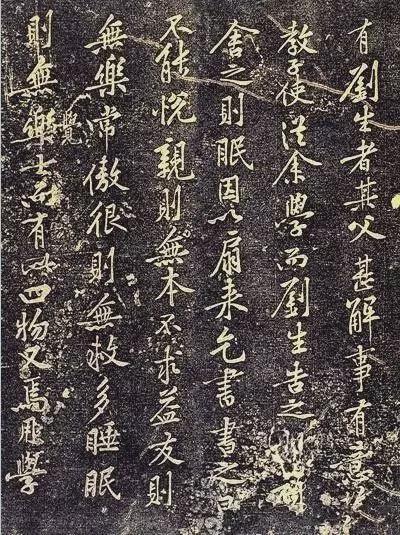 有劉生者其父甚解事有意
教子使從余學而劉生告之則
舍之則眠因以扇来乞書書之曰
不能悅親則無本不求益友則
無樂常傲很則無救多睡眠
則無樂覺士而有此四物又焉用學